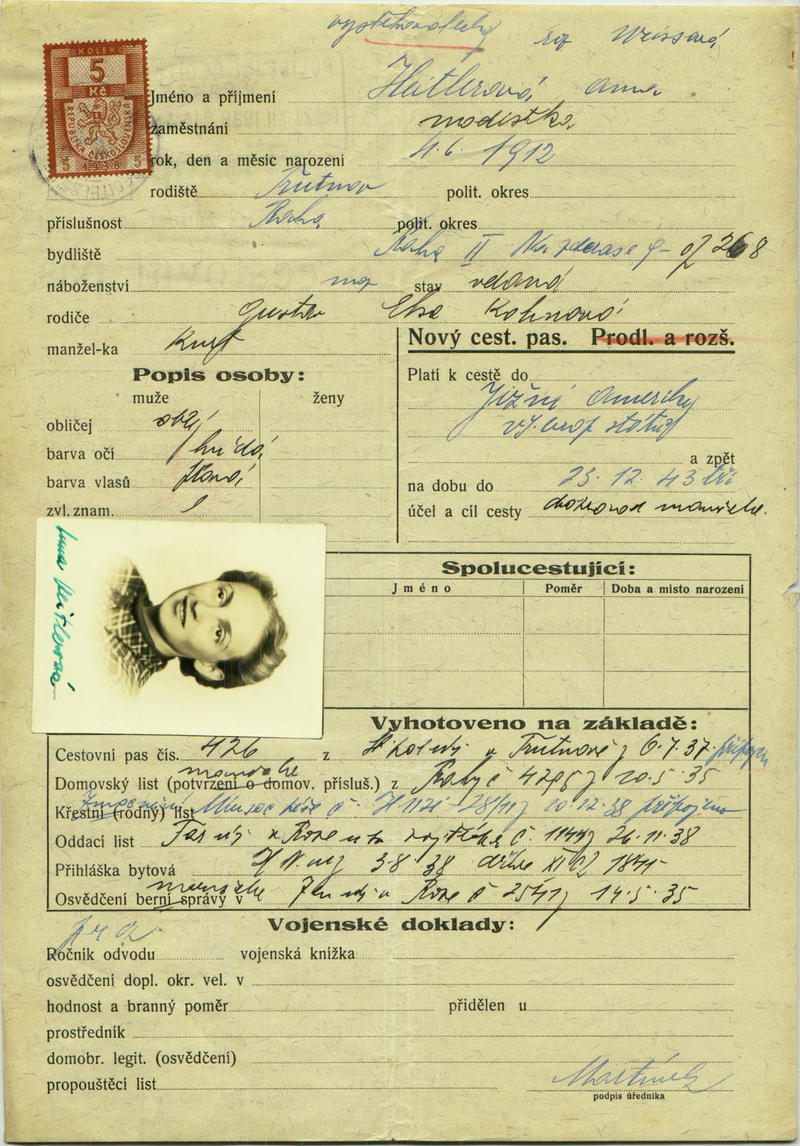 vystěhovalecký roz Weissová
KOLEK
5
Kč
REPUBLIKA ČESKOSLOVENSKÁ
5 5
Jméno a příjmení Heitlerová Anna
zaměstnání modistka
rok, den a měsíc narození 4.6. 1912
rodiště Trutnov polit. okres
příslušnost Praha polit. okres
bydliště Praha II Na zderase 9
náboženství stav vdaná
rodiče Gustav Elsa Kohnová
manžel-ka Kurt
Nový cest. pas. Prodl. a rozš.
Popis osoby:
muže ženy
Platí k cestě do Jižní Ameriky
obličej oblý
barva očí hnědá
a zpět
barva vlasů
na dobu do 23. 12. 43
zvl. znam.
účel a cíl cesty doprovod manžela.
Anna Heitlerová
Spolucestující:
Jméno Poměr Doba a místo narození
Vyhotoveno na základě:
Cestovní pas čís. 426 z v Trutnově z 6.7.37
manžela
Domovský list (potvrzení o domov. přísluš.) z Prahy č 4295 z 20.5.35
Křestní (rodný) list 10.12.38 připojeno
Oddací list č. 26.11.38
Přihláška bytová 3.8 38
manžela
Osvědčení berní správy v 14.5.35
Vojenské doklady:
Ročník odvodu vojenská knížka
osvědčení dopl. okr. vel. v
hodnost a branný poměr přidělen u
prostředník
domobr. legit. (osvědčení)
propouštěcí list
podpis úředníka